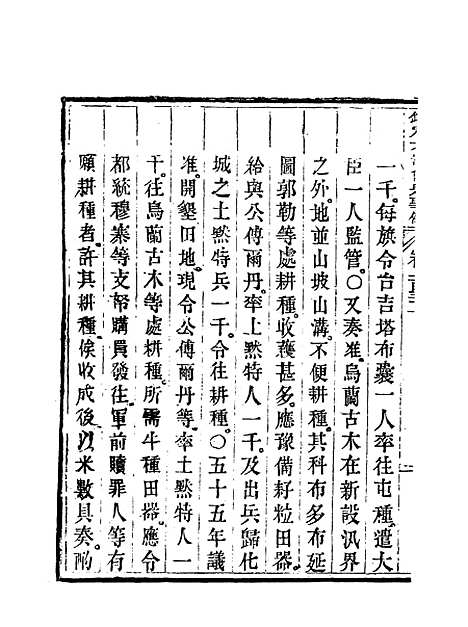 一千。每旗令台吉塔布囊一人率往屯種。遣大
臣一人監管。〇又奏准。烏蘭古木在新設汛界
之外。地並山坡山溝。不便耕種。其科布多布延
圖郭勒等處耕種。收穫甚多。應豫備耔粒田器。
給與公傅爾丹。率土黙特人一千。及出兵歸化
城之土黙特兵一千。令往耕種。〇五十五年議
准。開墾田地。現令公傅爾丹等。率土黙特人一
千。往烏蘭古木等處耕種。所需斗種田器。應令
都統穆賽等支帑購買發往。軍前贖罪人等有
願耕種者。許其耕種。俟收成後。以米數具奏。酌